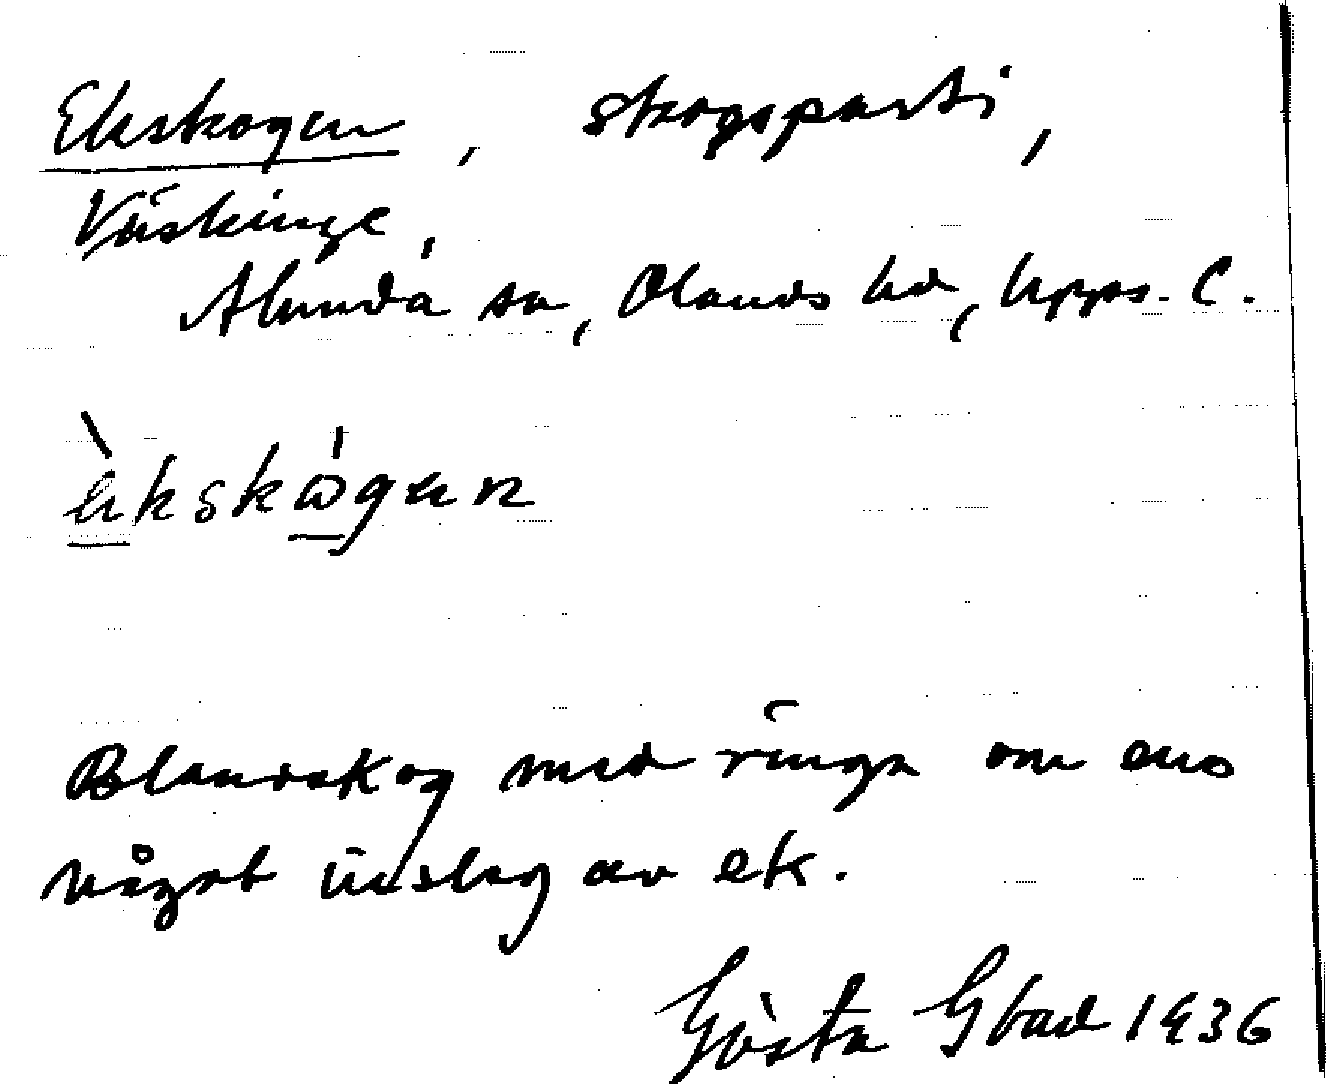 Ekskogen, skogsparti,
Väskinge,
Alunda sn, Olands hd, Upps. l.
èkskógen
Blandskog med ringa om ens
något inslag av ek.
Gösta 1936